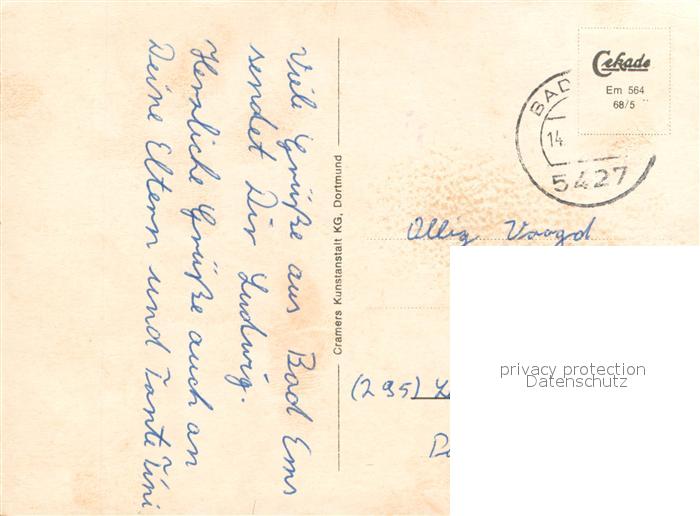 Viele Grüße aus Bad Ems
sendet Dir Ludwig.
Herzliche Grüße auch an
Deine Eltern und Tante Tini
Cramers Kunstanstalt KG, Dortmund
Cekade
Em 564
68/5
BAD
14.
5427
Ollig Voogd
(295)
privacy protection
Datenschutz